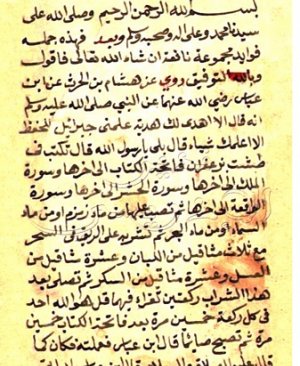 بسم الله الرحمن الرحيم وصلى الله على
سيدنا محمد وعلى اله وصحبه وسلم وبعد فهذه جملة
فوايد مجموعة نافعة ان شاء الله تعالى فاقول
وبالله التوفيق روي عن هشام بن الحرث عن ابن
عباس رضي الله عنهما عن النبي صلى الله عليه وسلم
انه قال الا اهدى لك هدية علمني جبرائيل للحفظ
الا اعلمك شيا قال بلى يا رسول الله قال تكتب في
طشت بزعفران فاتحة الكتاب الى اخرها وسورة
الملك الى اخرها وسورة الحشر الى اخرها وسورة
الواقعة الى اخرها ثم تصب عليها من ماء زمزم او من ماء
السماء او من ماء البحر ثم تشربه على الريق في السحر
مع ثلاث مثاقيل من اللبان وعشرة مثاقيل من
العسل وعشرة مثاقيل من السكر ثم تصلى بعد
هذا الشراب ركعتين تقراء فيها قل هو الله احد
في كل ركعة خمسين مرة بعد فاتحة الكتاب خمسين
مرة ثم تصبح صائما قال ابن عباس ففعلته فكان كما